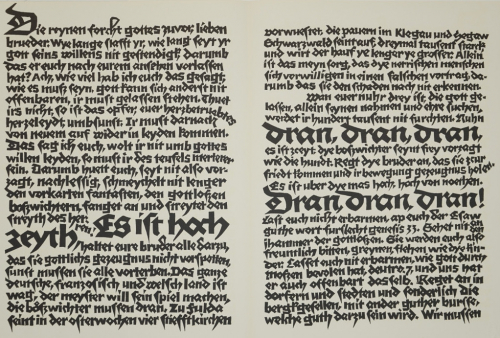 Die reynen forcht gottes zuvor, lieben
brueder. Wye lange slafft yr, wie lang seyt yr
got seins willens nit gestendigt, darumb
das er euch nach eurem ansehen vorlassen
hat? Ach, wie viel hab ich euch das gesagt,
wie es muß seyn, got kann sich anderst nit
offenbaren, ir must gelassen stehen. Thuet
irs nicht, so ist das opfer, euer herzbetruebtes
herzeleyd, umbsunst. Ir must darnach
von neuem auf wider in leyden kommen.
Das sag ich euch, wolt ir nit umb gottes
willen leyden, so must ir des teufels merterer
sein. Darumb huett euch, seyt nit also vor-
zagt, nachlessig, schmeychelt nit lenger
den vorkarten fantasten, den gottloßen
boßwichtern, fanget an und streytet den
streyth des herren! Es ist hoch
zeyth, haltet eure bruder alle darzu,
das sie gottlichs gezeugnus nicht vorspotten,
sunst mussen sie alle vorterben. Das ganze
deutsche, französisch und welsch land ist
wag, der meyster will sein spiel machen,
die boßwichter mussen dran. Zu Fulda
seint in der osterwochen vier stieftkirchen
vorwuestet, die pauern im Klegau und Hegaw
Schwarzwald seint auf, dreymal tausent starck
und wirt der hauf ye lenger ye grosser. Allein
ist das meyn sorg, das dye nerischen menschen
sich vorwilligen in einen falschen vortrag, da-
rumb das sie den schaden nach nit erkennen.
Wan euer nuhr drey ist, die in got ge-
lassen, allein seynen nahmen und ehre suchen,
werdet ir hundert tausent nit furchten. Nuhn
dran, dran, dran,
es ist zeyt, dye boßwichter seynt frey vorzagt
wie die hundt. Regt dye bruder an, das sie zur
friedt kommen und ir bewegung gezeugnus holen.
Es ist uber dye mas hoch, hoch von noethen.
Dran, dran, dran!
Last euch nicht erbarmen, ap euch der Esaw
guthe wort furslecht genesis 33. Sehet nit an
jhammer der gottloßen. Sie werden euch also
freuntlich bitten, greynen, flehen wie dye kin-
der. Lasset euch nit erbarmen, wie got durch
mosen bevolen hat, deutro. 7, und uns hat
er auch offenbart das selb. Reget an in
dorfern und stedten und sonderlich die
bergkgesellen, mit ander guther bursse,
welche guth darzu sein wird. Wir mussen